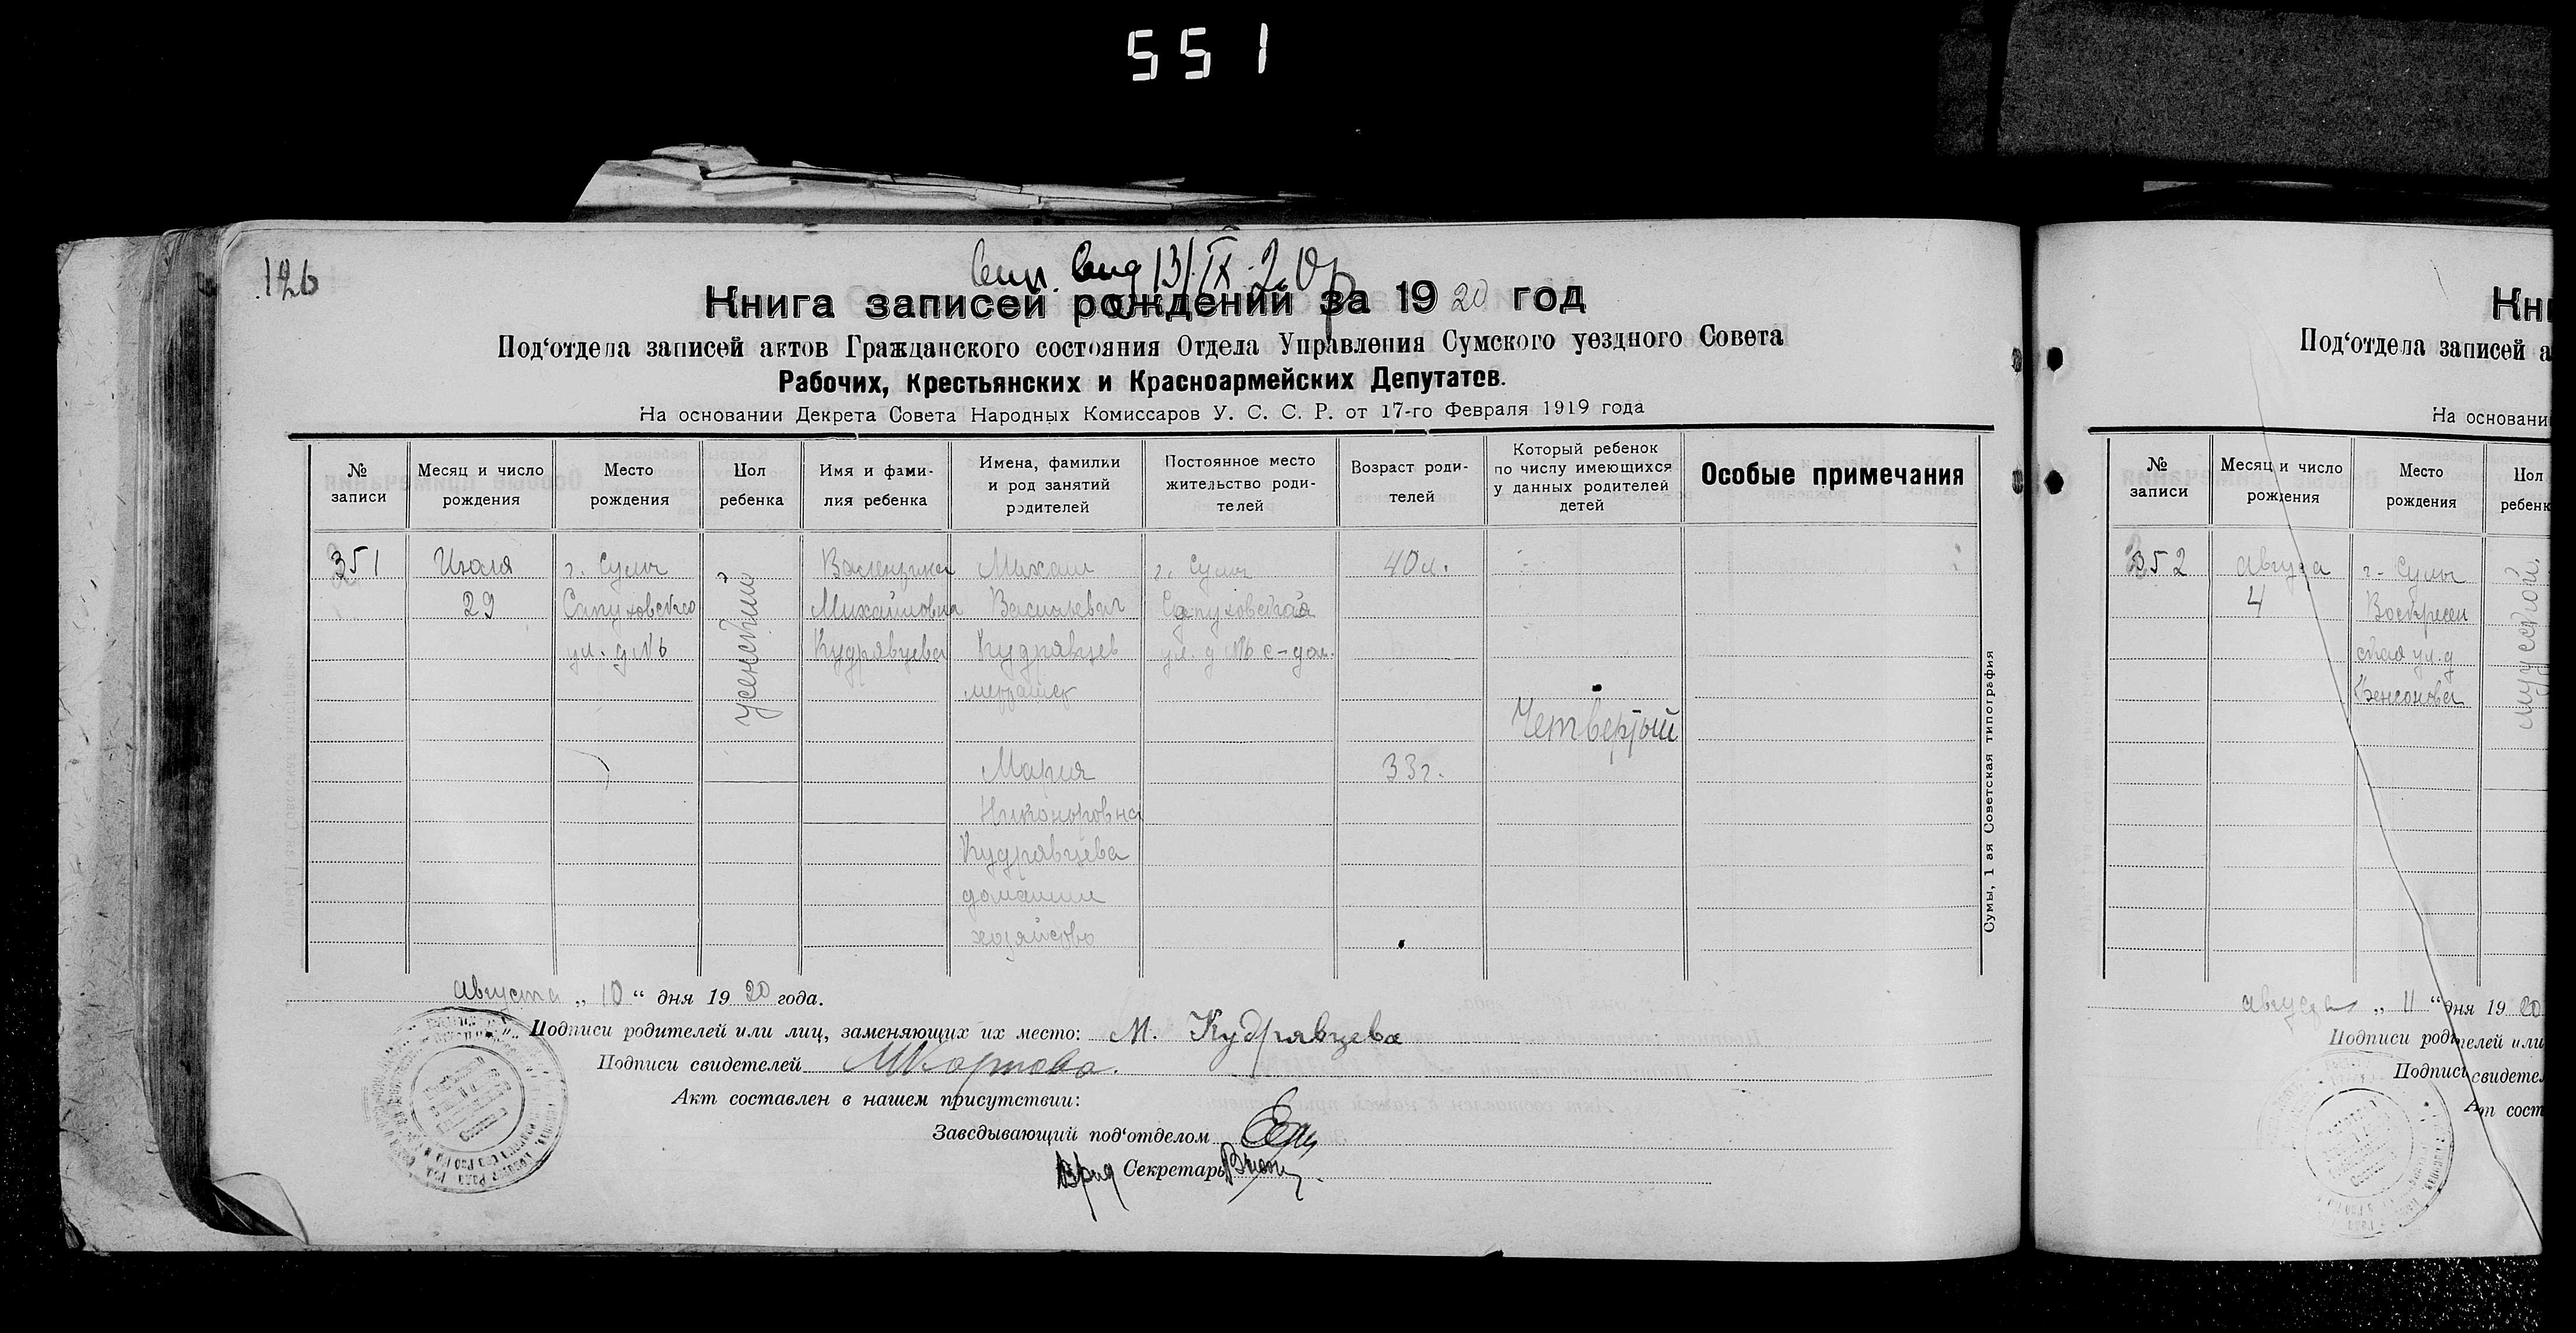 551
126
13/IX-20
Книга записей рождений за 1920 год
Под‘отдела записей актов Гражданского состояния Отдела Управления Сумского уездного Совета
Рабочих, Крестьянских и Красноармейских Депутатов.
На основании Декрета Совета Народных Комиссаров У. С. С. Р. от 17-го Февраля 1919 года
№ записи
Месяц и число рождения
Место рождения
Пол ребенка
Имя и фами-
лия ребенка
Имена, фамилии
и род занятий
родителей
Постоянное место
жительство роди-
телей
Возраст роди-
телей
Который ребенок
по числу имеющихся
у данных родителей
детей
Особые примечания
351
Июля
29
г. Сумы
ул. д №6
женский
Валентина
Михайловна
Кудрявцева
Михаил
Васильевич
Кудрявцев
Мария
Никоноровна
Кудрявцева
домашн
г. Сумы
ул. д №6 с-дом.
40 л.
33 г.
Четвертый
Сумы, 1 ая Советская типография
Августа „ 10 “ дня 1920 года.
Подписи родителей или лиц, заменяющих их место: М. Кудрявцева
Подписи свидетелей
Акт составлен в нашем присутствии:
Заведывающий под‘отделом
Врид Секретарь
Кни
Под‘отдела записей а
На основани
№ записи
Месяц и число рождения
Место рождения
Пол
ребенк
352
4
г. Сумы
Воскресен
ская ул. д
„ 11 “ дня 1920
Подписи родителей или
Подписи свидете
Акт сост